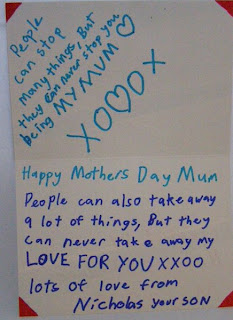 People
can stop
many things, But
they can never stop you
being MY MUM ♡
XO♡OX
Happy Mothers Day Mum
People can also take away
a lot of things, But they
can never take away my
LOVE FOR YOU XXOO
lots of love from
Nicholas your SON